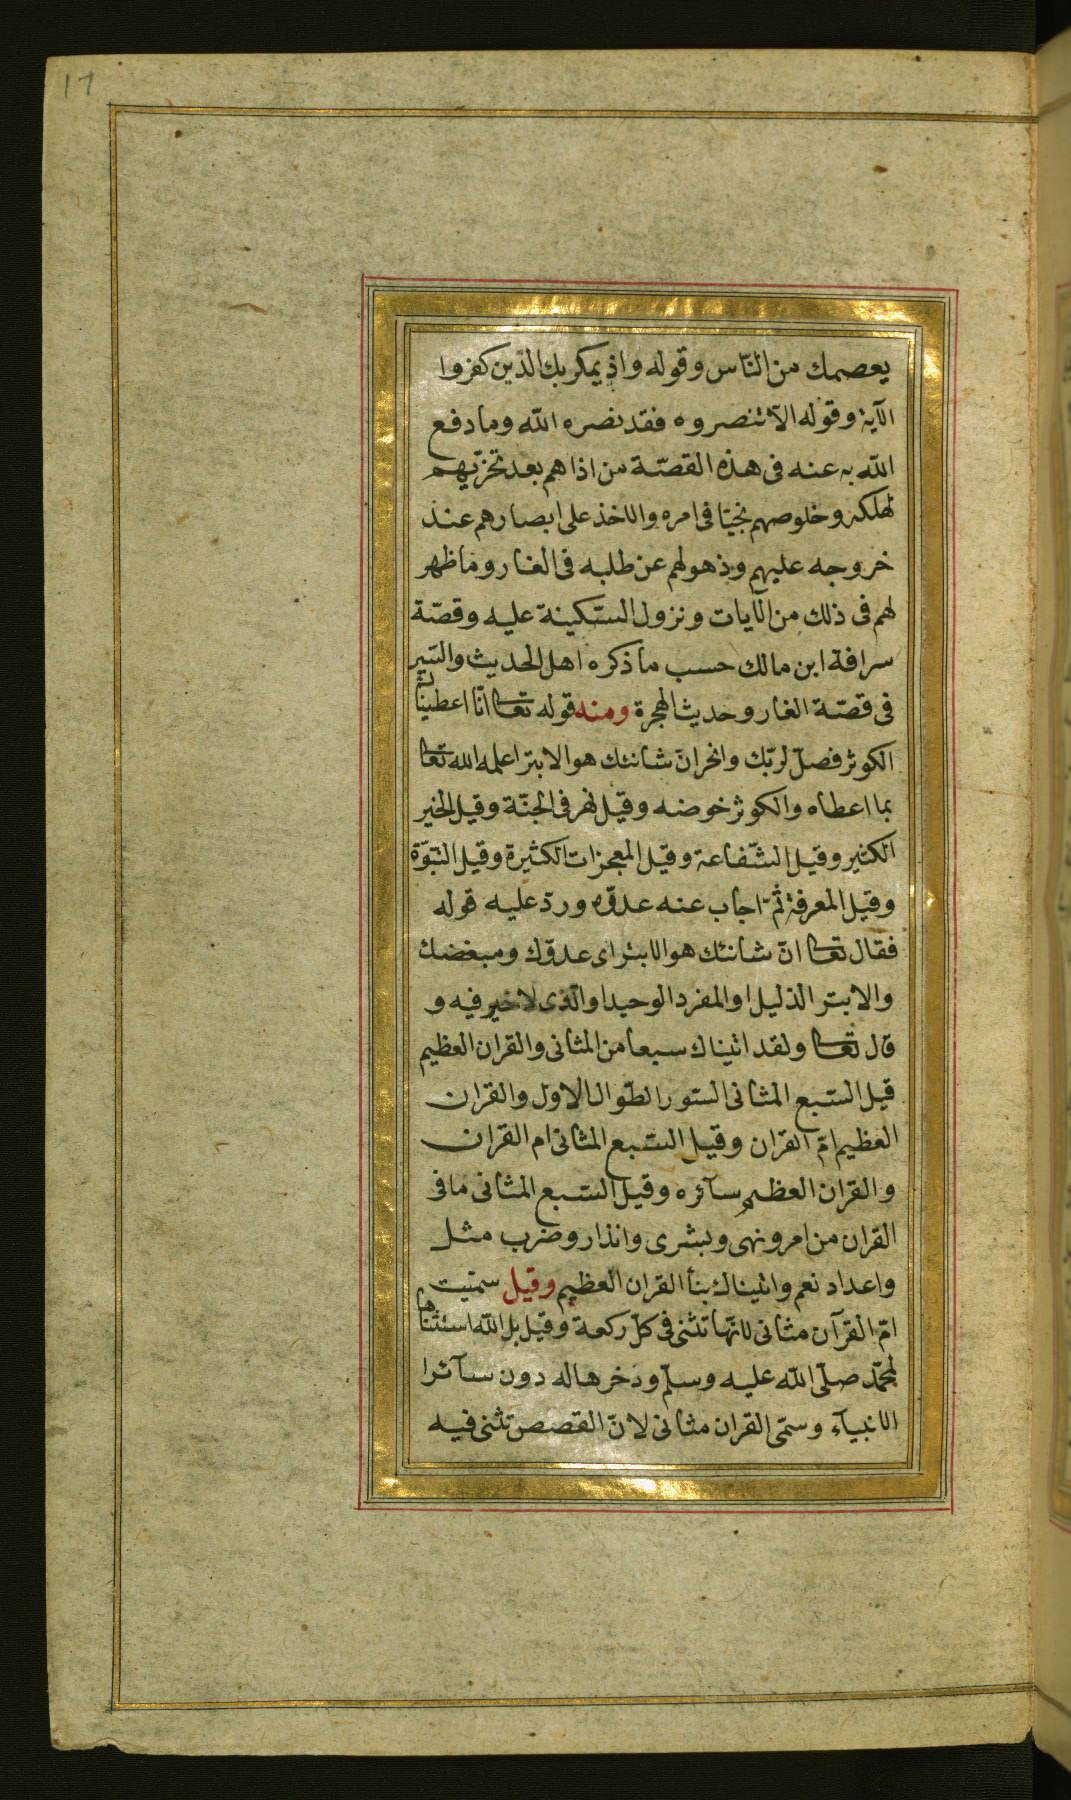 17
يعصمك من النّاس وقوله واذ يمكر بك الذين كفروا
الآية وقوله الّا تنصروه فقد نصره الله وما دفع
الله به عنه فى هذه القصّة من اذاهم بعد تحزّبهم
لهلكه وخلوصهم نجيّا فى امره والاخذ على ابصارهم عند
خروجه عليهم وذهولهم عن طلبه فى الغار وما ظهر
لهم فى ذلك من الآيات ونزول السّكينة عليه وقصّة
سراقة ابن مالك حسب ما ذكره اهل الحديث والسّير
فى قصّة الغار وحديث الهجرة ومنه قوله تعا انّا اعطيناك
الكوثر فصلّ لربّك وانحر انّ شانئك هو الابتر اعلمه الله تعا
بما اعطاه والكوثر حوضه وقيل نهر فى الجنّة وقيل الخير
الكثير وقيل الشّفاعة وقيل المعجزات الكثيرة وقيل النّبوّة
وقيل المعرفة ثمّ اجاب عنه عدوّه وردّ عليه قوله
فقال تعا انّ شانئك هو الابتر اى عدوّك ومبغضك
والابتر الذليل او المفرد الوحيد او الّذى لا خير فيه و
قال تعا ولقد اتيناك سبعا من المثانى والقران العظيم
قيل السّبع المثانى السّور الطّوال الاول والقران
العظيم امّ القران وقيل السّبع المثانى ام القران
والقران العظيم سآئره وقيل السّبع المثانى ما فى
القران من امر ونهى وبشرى وانذار وضرب مثل
واعداد نعم واتيناك نبأ القران العظيم وقيل سمّيت
امّ القرآن مثانى لانّها تثنى فى كلّ ركعة وقيل بل الله استثناها
لمحمّد صلّى الله عليه وسلّم وذخرها له دون سآئر
الانبيآء وسمّى القران مثانى لانّ القصص تثنى فيه